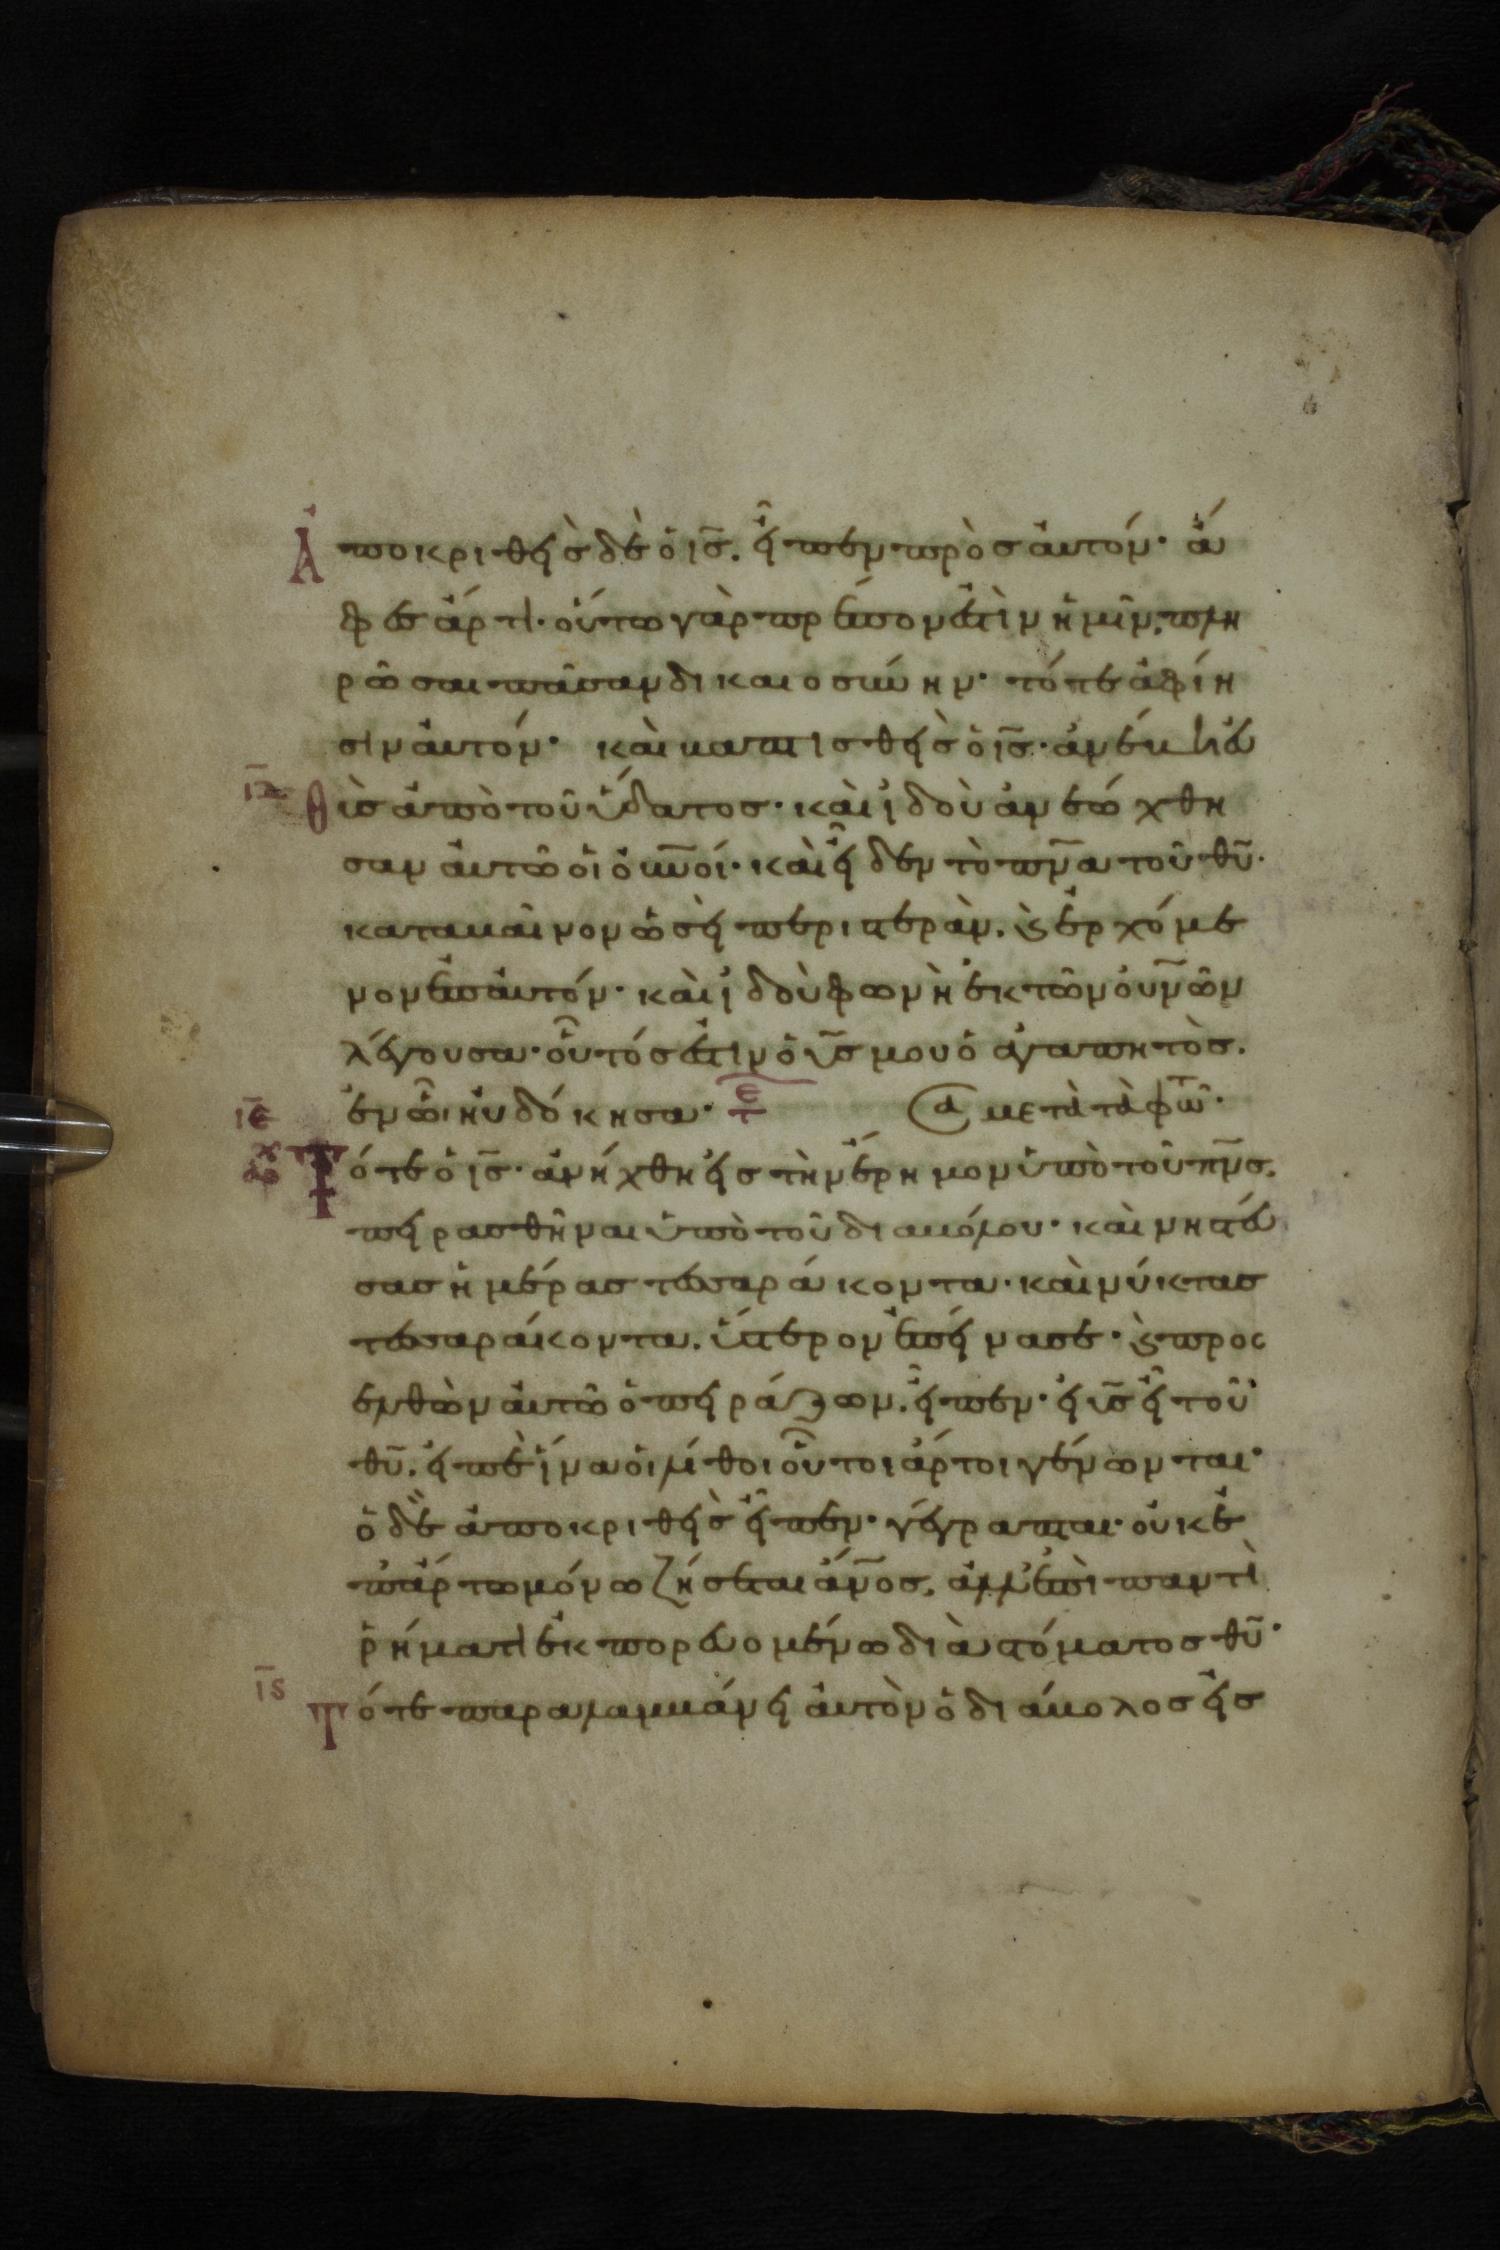 Ἀποκριθεὶς δὲ ὁ ις̅. εἶπεν πρὸς αὐτόν· ἄ
φες ἄρτι· οὕτω γὰρ πρέπον ἐστὶν ἡμῖν, πλη
ρῶσαι πᾶσαν δικαιοσύνην· τότε ἀφίη
σιν αὐτόν· καὶ βαπτισθεὶς ὁ ις̅· ἀνέβη εὐ
ιδ̅ θὺς ἀπὸ τοῦ ὕδατος· καὶ ἰδοὺ ἀνεώχθη
σαν αὐτῶ οἱ οὐνοί· καὶ εἶδεν τὸ πν̅α τοῦ θυ̅·
καταβαῖνον ὡσεὶ περιστερὰν. ϗ ἐρχόμε
νον ἐπ αὐτόν· καὶ ἰδοὺ φωνὴ ἐκ τῶν οὐν̅ῶν
λέγουσα· οὗτός ἐστιν ὁ υς̅ μου ὁ ἀγαπητὸς.
ιε̅ ἐν ὧ ηὐδόκησα· τε̅ α μετὰ τὰ φῶτ·
Τότε ὁ ις̅· ἀνήχθη εἰς τὴν ἔρημον ὑπὸ τοῦ πν̅ς.
πειρασθῆναι ὑπὸ τοῦ διαβόλου· καὶ νηστεύ
σας ἡμέρας τεσσαράκοντα· καὶ νύκτας
τεσσαράκοντα. ὕστερον ἐπείνασε· ϗ προσ
ελθὼν αὐτῶ ὁ πειράζων. εἶπεν· εἰ υς̅ εἶ τοῦ
θυ̅. εἰπὲ ἵνα οἱ λίθοι οὗτοι ἄρτοι γένωνται·
ὁ δὲ ἀποκριθεὶς εἶπεν· γέγραπται· οὐκ ἐ
π ἄρτω μόνω ζήσεται ἄν̅ος. ἀλλ ἐπὶ παντὶ
ῥήματι ἐκπορευομένω διὰ στόματος θυ̅·
ις̅ Τότε παραλαμβάνει αὐτὸν ὁ διάβολος εἰς